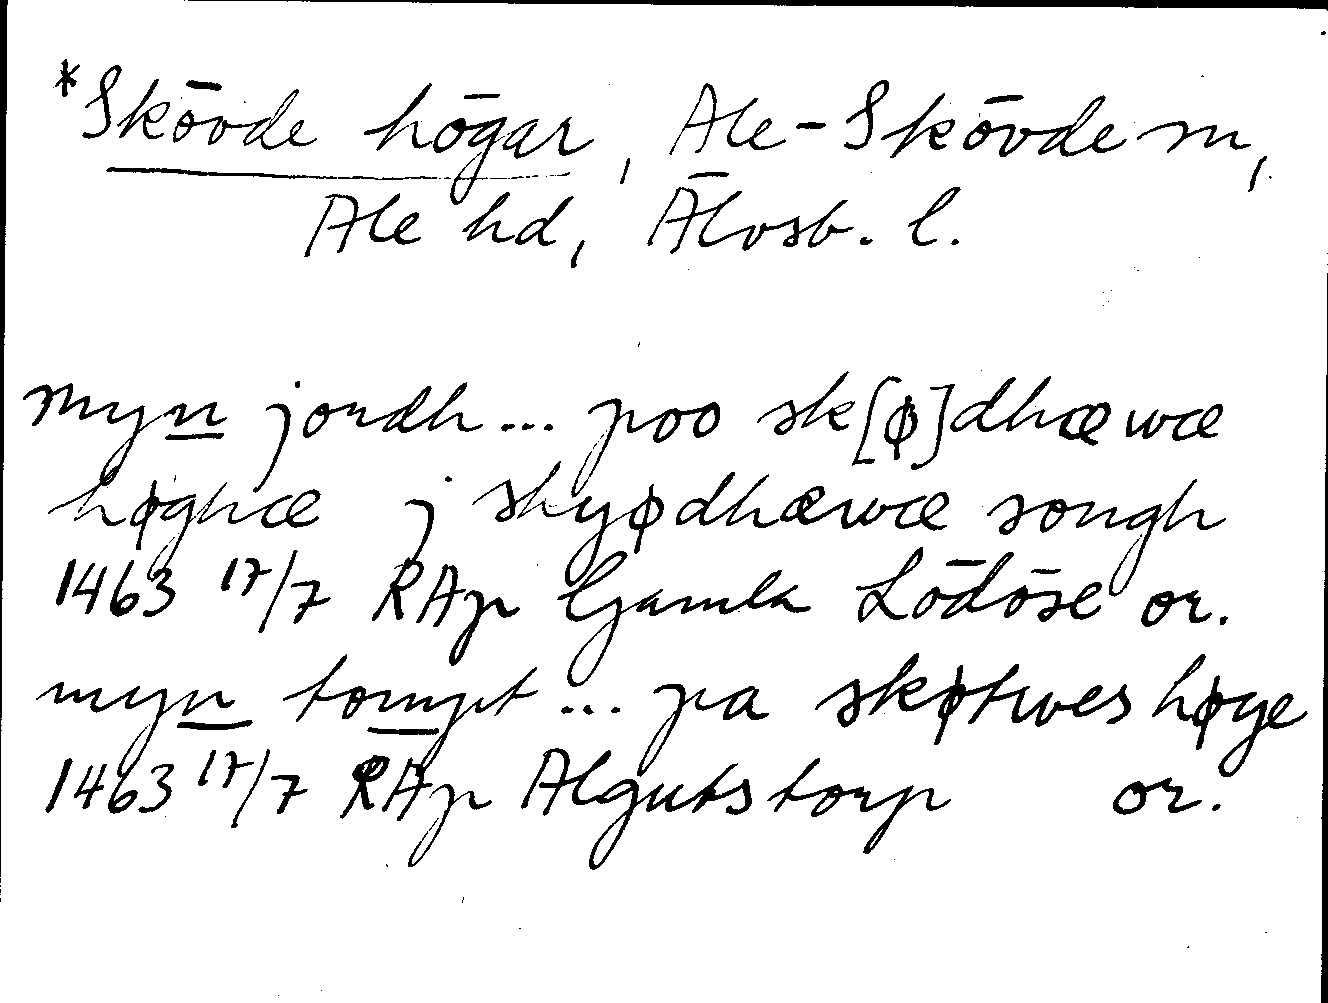 *Skövde högar, Ale-Skövde sn,
Ale hd, Älvsb. l.
myn jordh... poo sk[ø]dhæwæ
høghæ j skyødhæwæ songh
1463 17/7 RAp Gamla Lödöse or.
myn tompt... pa skøtwes høge
1463 17/7 RAp Algutstorp or.